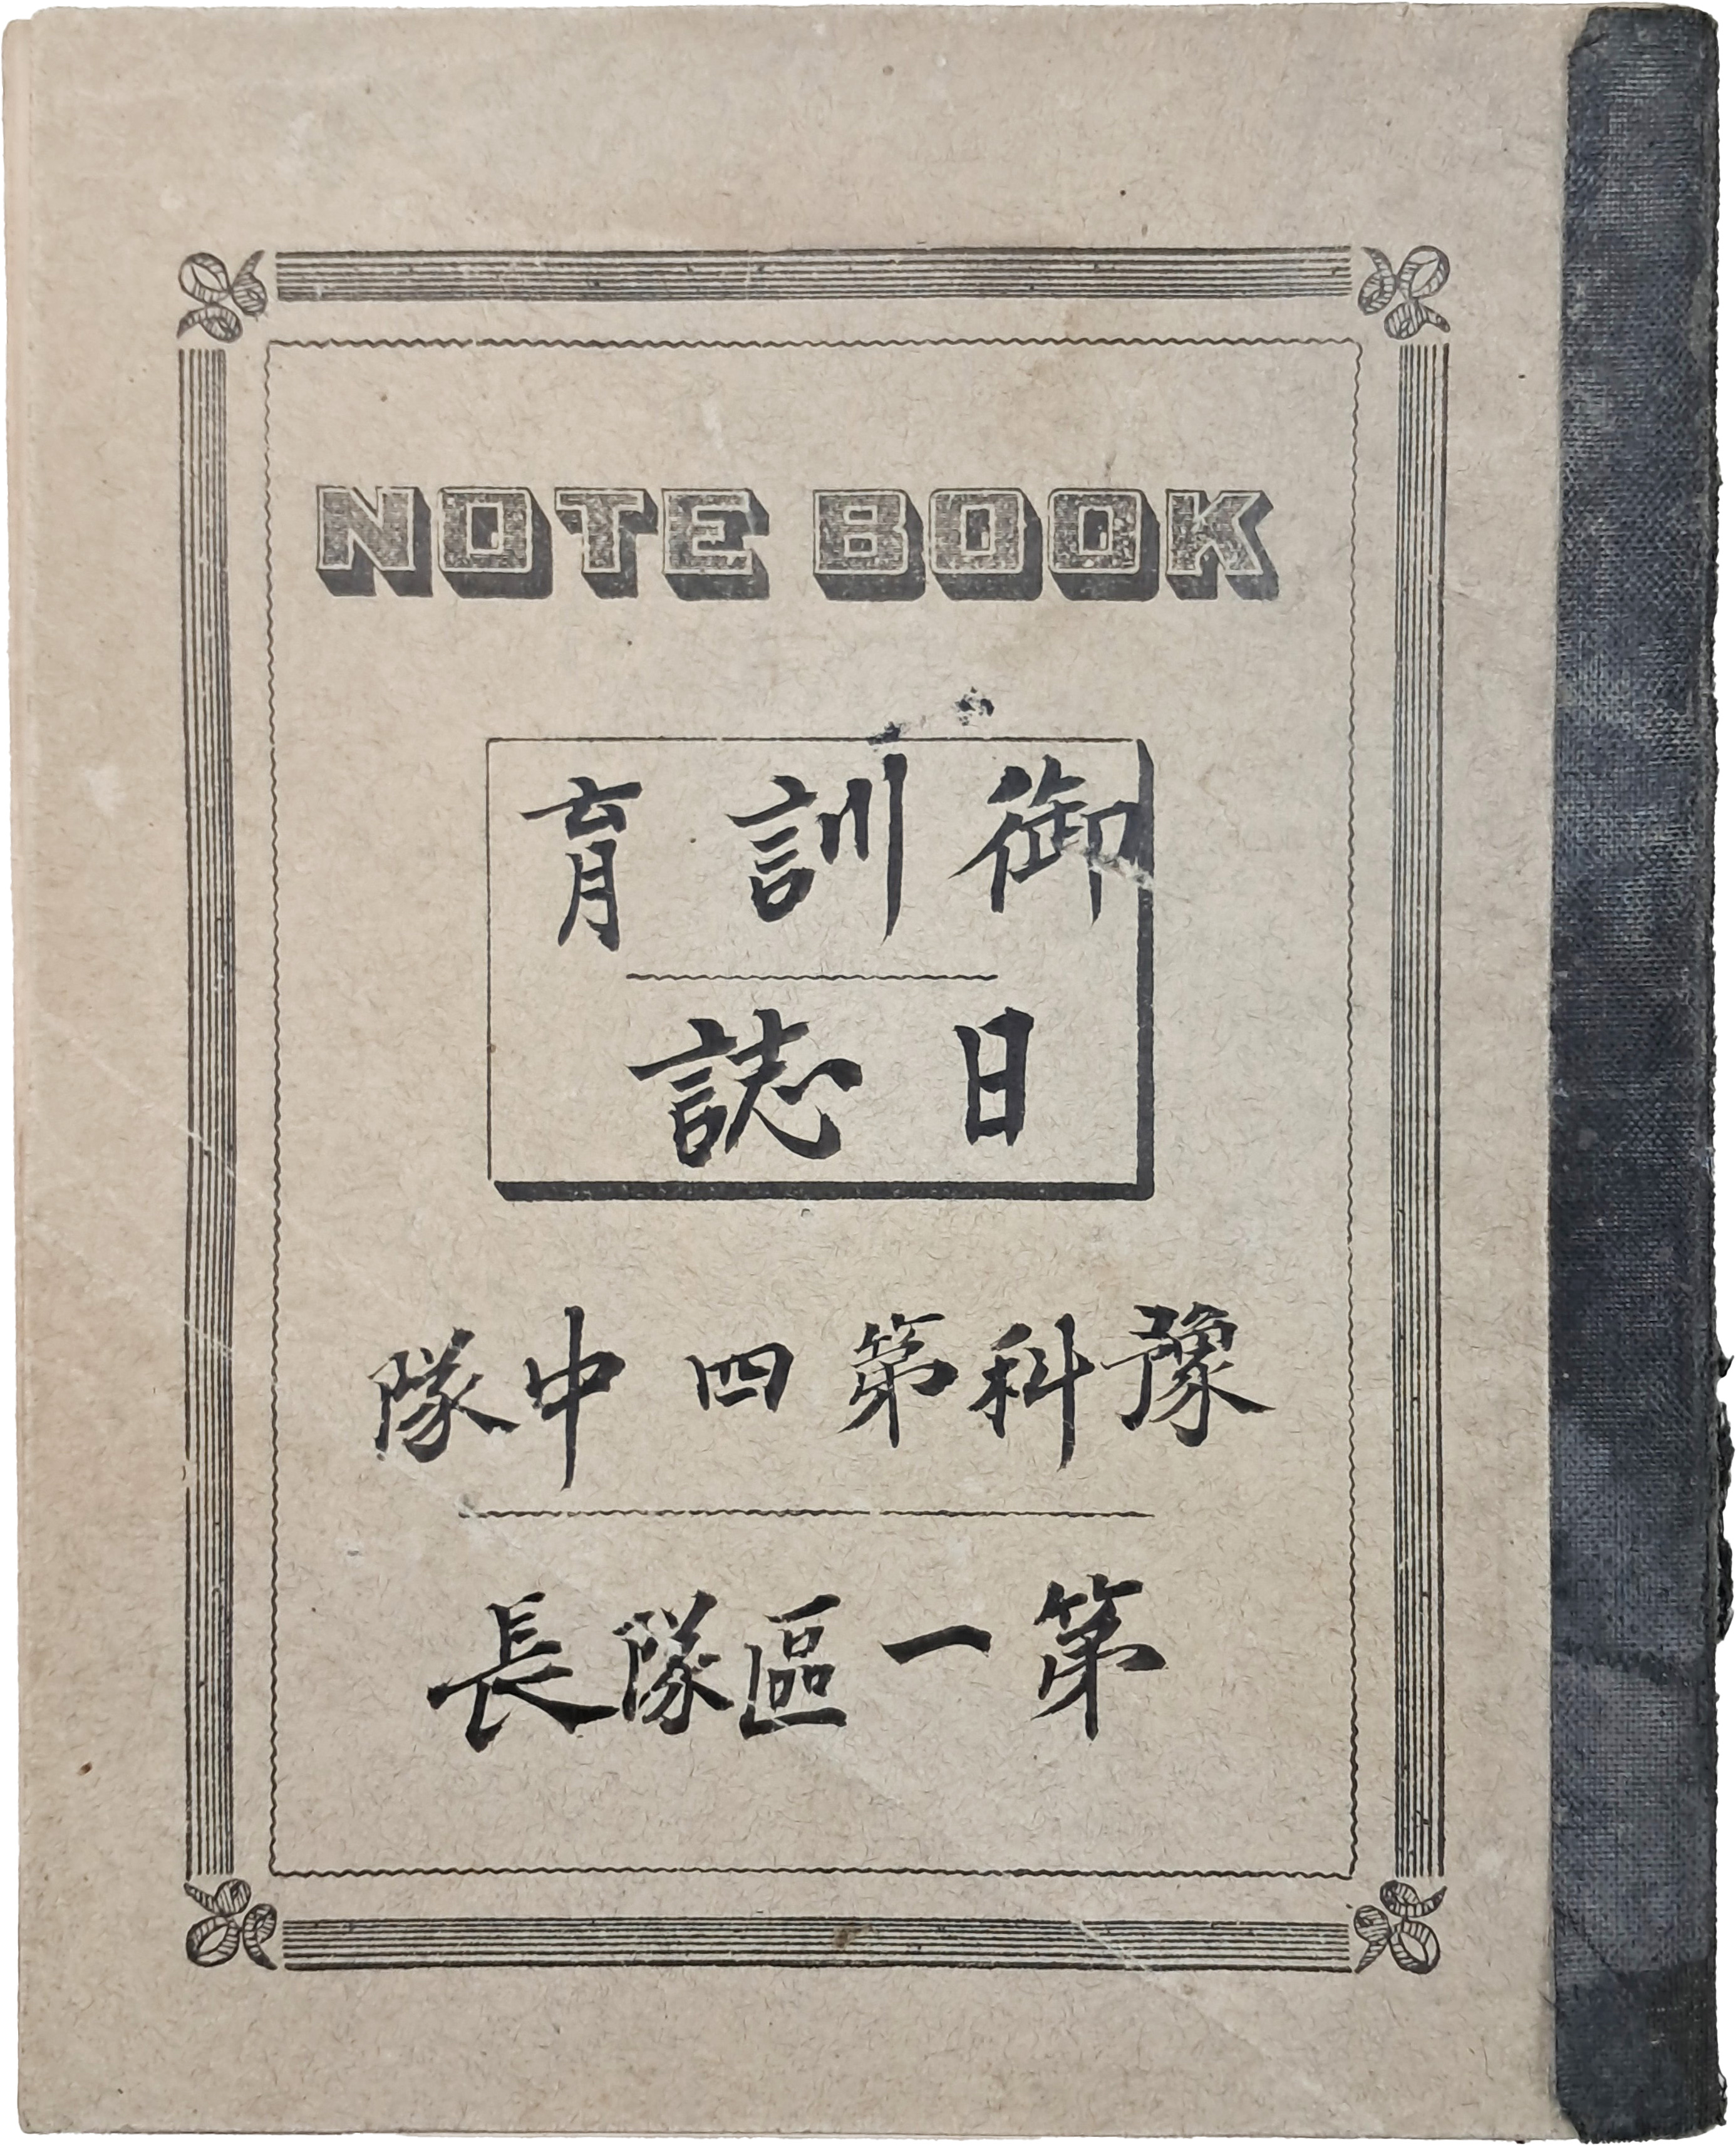 NOTE BOOK
御訓育
日誌
豫科第四中隊
第一區隊長